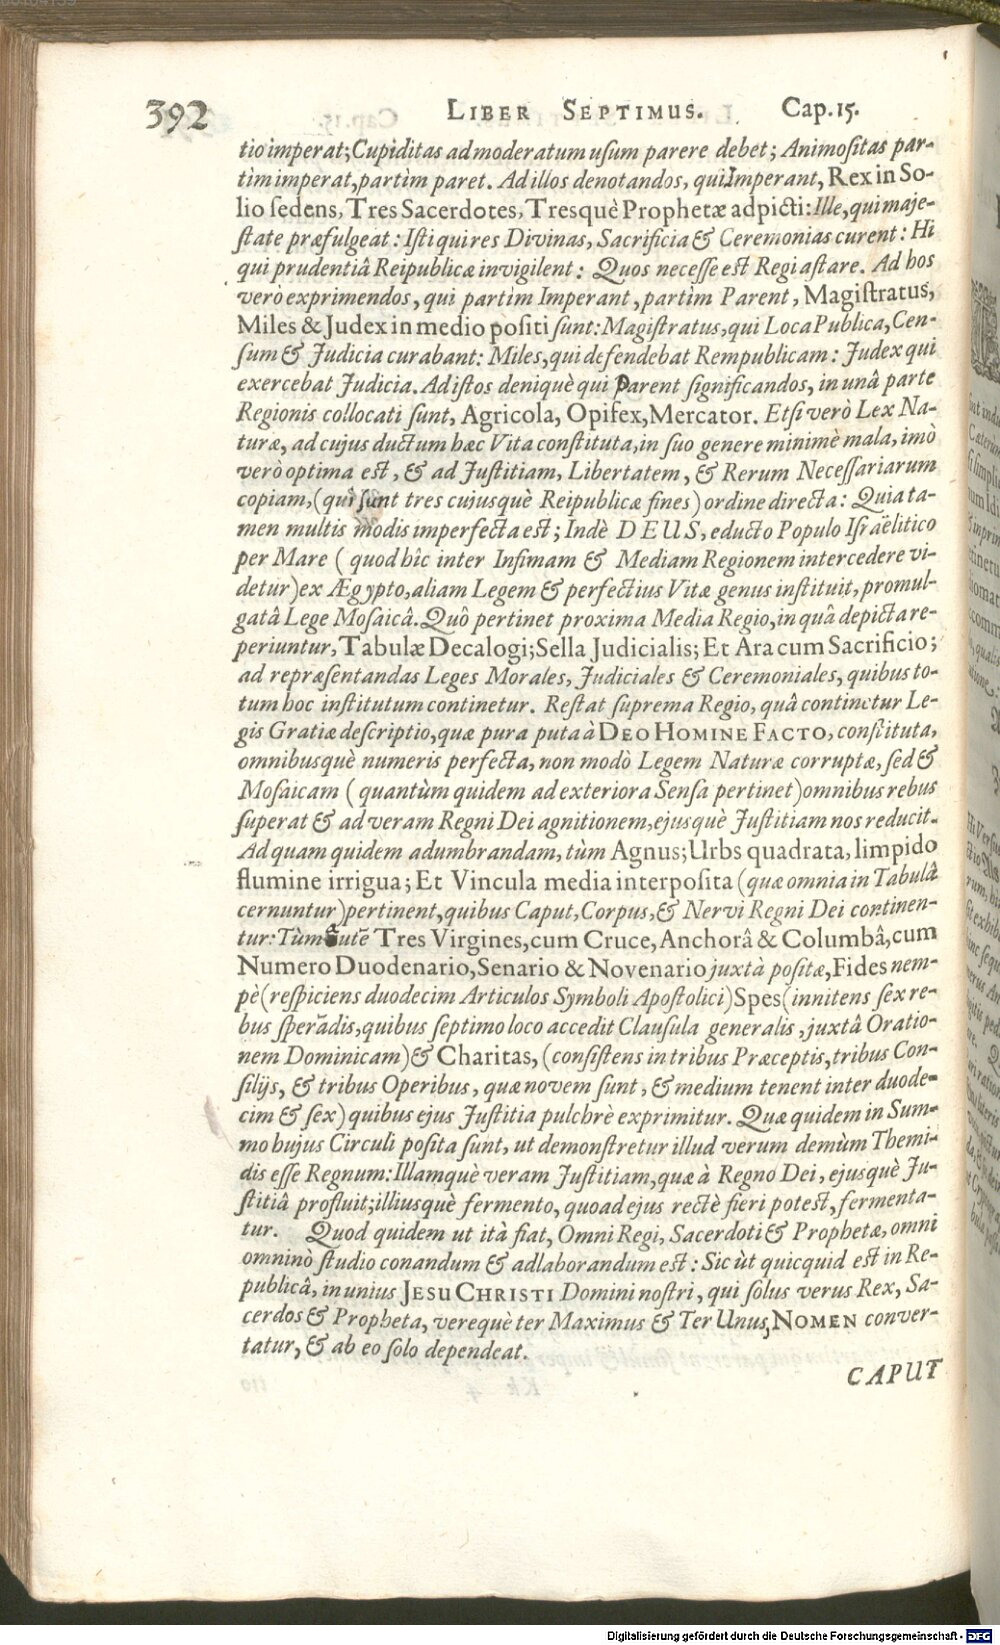 392 LIBER SEPTIMUS. Cap. 15.
tio imperat; Cupiditas ad moderatum uſum parere debet; Animoſitas par-
tim imperat, partìm paret. Ad illos denotandos, qui Imperant, Rex in So-
lio ſedens, Tres Sacerdotes, Tresquè Prophetæ adpicti: Ille, qui maje-
ſtate præfulgeat: Iſti qui res Divinas, Sacrificia & Ceremonias curent: Hi
qui prudentiâ Reipublicæ invigilent: Quos neceſſe est Regi aſtare. Ad hos
verò exprimendos, qui partìm Imperant, partìm Parent, Magiſtratus,
Miles & Judex in medio poſiti ſunt: Magiſtratus, qui Loca Publica, Cen-
ſum & Judicia curabant: Miles, qui defendebat Rempublicam: Judex qui
exercebat Judicia. Ad iſtos deniquè qui Parent ſignificandos, in unâ parte
Regionis collocati ſunt, Agricola, Opifex, Mercator. Etſi verò Lex Na-
turæ, ad cujus ductum hæc Vita conſtituta, in ſuo genere minimè mala, imò
verò optima est, & ad Juſtitiam, Libertatem, & Rerum Neceſſariarum
copiam, (qui ſunt tres cujusquè Reipublicæ fines) ordine directa: Quia ta-
men multis modis imperfecta est; Indè DEUS, educto Populo Iſraëlitico
per Mare ( quod hîc inter Infimam & Mediam Regionem intercedere vi-
detur) ex Ægypto, aliam Legem & perfectius Vitæ genus inſtituit, promul-
gatâ Lege Moſaicâ. Quô pertinet proxima Media Regio, in quâ depicta re-
periuntur, Tabulæ Decalogi; Sella Judicialis; Et Ara cum Sacrificio;
ad repræſentandas Leges Morales, Judiciales & Ceremoniales, quibus to-
tum hoc inſtitutum continetur. Reſtat ſuprema Regio, quâ continetur Le-
gis Gratiæ deſcriptio, quæ pura puta à DEO HOMINE FACTO, conſtituta,
omnibusquè numeris perfecta, non modò Legem Naturæ corruptæ, ſed &
Moſaicam ( quantùm quidem ad exteriora Senſa pertinet) omnibus rebus
ſuperat & ad veram Regni Dei agnitionem, ejusquè Juſtitiam nos reducit.
Ad quam quidem adumbrandam, tùm Agnus; Urbs quadrata, limpido
flumine irrigua; Et Vincula media interpoſita (quæ omnia in Tabulâ
cernuntur) pertinent, quibus Caput, Corpus, & Nervi Regni Dei continen-
tur: Tùm autē Tres Virgines, cum Cruce, Anchorâ & Columbâ, cum
Numero Duodenario, Senario & Novenario juxtà poſitæ, Fides nem-
pè (reſpiciens duodecim Articulos Symboli Apoſtolici) Spes (innitens ſex re-
bus ſperādis, quibus ſeptimo loco accedit Clauſula generalis, juxtâ Oratio-
nem Dominicam) & Charitas, (conſiſtens in tribus Præceptis, tribus Con-
ſilijs, & tribus Operibus, quæ novem ſunt, & medium tenent inter duode-
cim & ſex) quibus ejus Juſtitia pulchrè exprimitur. Quæ quidem in Sum-
mo hujus Circuli poſita ſunt, ut demonſtretur illud verum demùm Themi-
dis eſſe Regnum: Illamquè veram Juſtitiam, quæ à Regno Dei, ejusquè Ju-
ſtitiâ profluit; illiusquè fermento, quoad ejus rectè fieri poteſt, fermenta-
tur. Quod quidem ut ità fiat, Omni Regi, Sacerdoti & Prophetæ, omni
omninò ſtudio conandum & adlaborandum est: Sic ùt quicquid est in Re-
publicâ, in unius JESU CHRISTI Domini noſtri, qui ſolus verus Rex, Sa-
cerdos & Propheta, verequè ter Maximus & Ter Unus, NOMEN conver-
tatur, & ab eo ſolo dependeat.
CAPUT
Digitalisierung gefördert durch die Deutsche Forschungsgemeinschaft - DFG